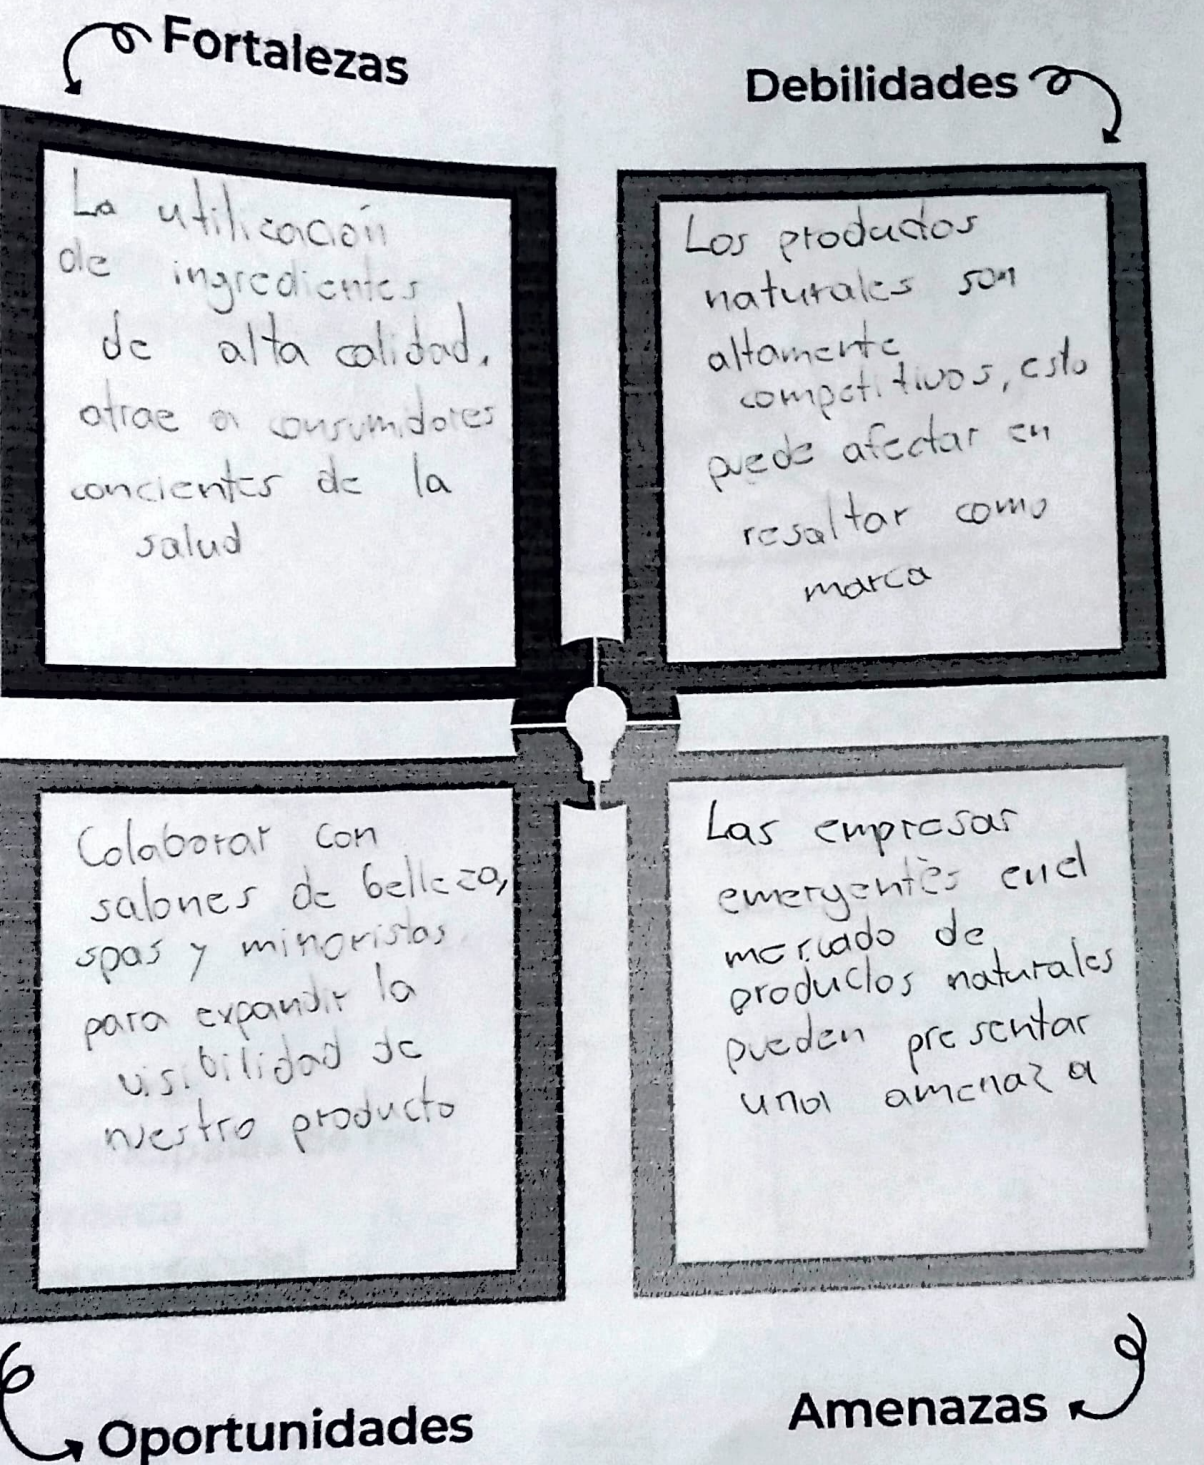 Fortalezas
La utilización
de ingredientes
de alta calidad,
atrae a consumidores
concientes de la
salud
Debilidades
Los productos
naturales son
altamente
competitivos, esto
puede afectar en
resaltar como
marca
Colaborar con
salones de belleza,
spas y minoristas
para expandir la
visibilidad de
nuestro producto
Oportunidades
Las empresas
emergentes en el
mercado de
productos naturales
pueden presentar
una amenaza
Amenazas